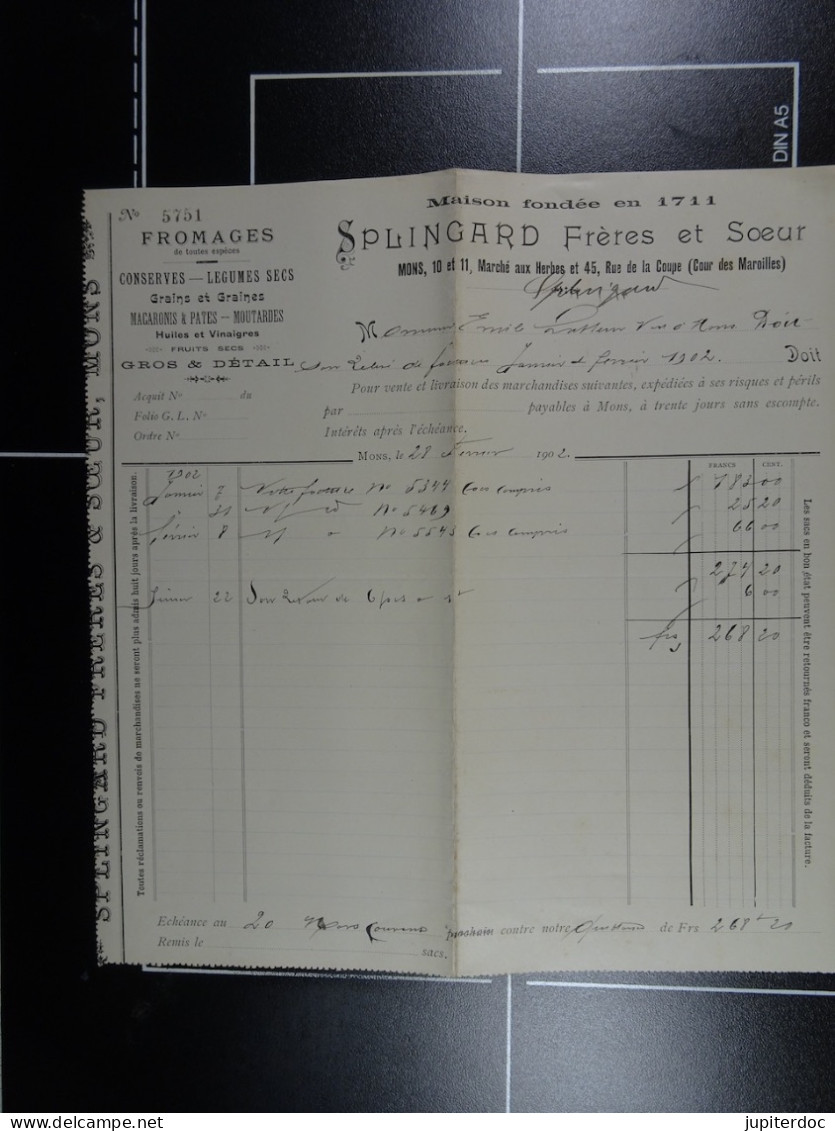 DIN A5
No 5751
FROMAGES
de toutes espèces
CONSERVES — LEGUMES SECS
Grains et Graines
MACARONIS & PATES — MOUTARDES
Huiles et Vinaigres
FRUITS SECS
GROS & DÉTAIL
Acquit No du
Folio G. L. No
Ordre No
Maison fondée en 1711
SPLINGARD Frères et Sœur
MONS, 10 et 11, Marché aux Herbes et 45, Rue de la Coupe (Cour des Maroilles)
Splingard
Monsieur Emile
Son de factures Janvier & février 1902. Doit
Pour vente et livraison des marchandises suivantes, expédiées à ses risques et périls
par payables à Mons, à trente jours sans escompte.
Intérêts après l'échéance.
Mons, le 28 Fevrier 1902.
FRANCS CENT.
1902
Janvier 7 Notre facture No 5344 sacs compris 183 00
31 No 5469 25 20
février 8 No 5543 sacs compris 66 00
274 20
22 Son retour de 6 00
frs 268 20
Echéance au 20 Mars courant prochain contre notre quittance de Frs 268 20
Remis le sacs.
SPLINGARD FRERES & SŒUR, MONS
Toutes réclamations ou renvois de marchandises ne seront plus admis huit jours après la livraison.
Les sacs en bon état peuvent être retournés franco et seront déduits de la facture.
jupiterdoc